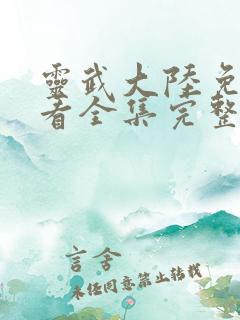 靈武大陸免
者全集完整
言舍
未経同意禁止转载